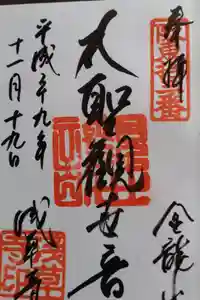 奉拝
金龍山
大聖観世音
浅草寺
平成二十九年
十一月十九日